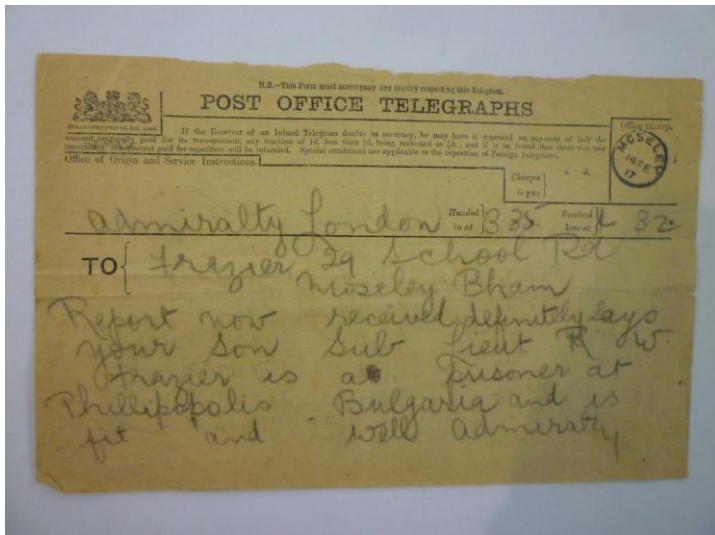 N.B.—This Form must accompany any inquiry respecting this Telegram.
POST OFFICE TELEGRAPHS
If the Receiver of an Inland Telegram doubts its accuracy, he may have it repeated on payment of half the
amount originally paid for its transmission; any fraction of 1d. less than ½d. being reckoned as ½d.; and if it be found that there was any
inaccuracy, the amount paid for repetition will be refunded. Special conditions are applicable to the repetition of Foreign Telegrams.
Office of Origin and Service Instructions.
Office Stamp.
MOSELEY
19 FE
17
Charges to pay
s. d.
Admiralty London
Handed in at 3 35
Received here at 4 32
TO Frazier 29 School Rd
Moseley Bham
Report now received definitely says
your Son Sub Lieut R W
Frazier is a prisoner at
Phillipopolis Bulgaria and is
fit and well Admiralty